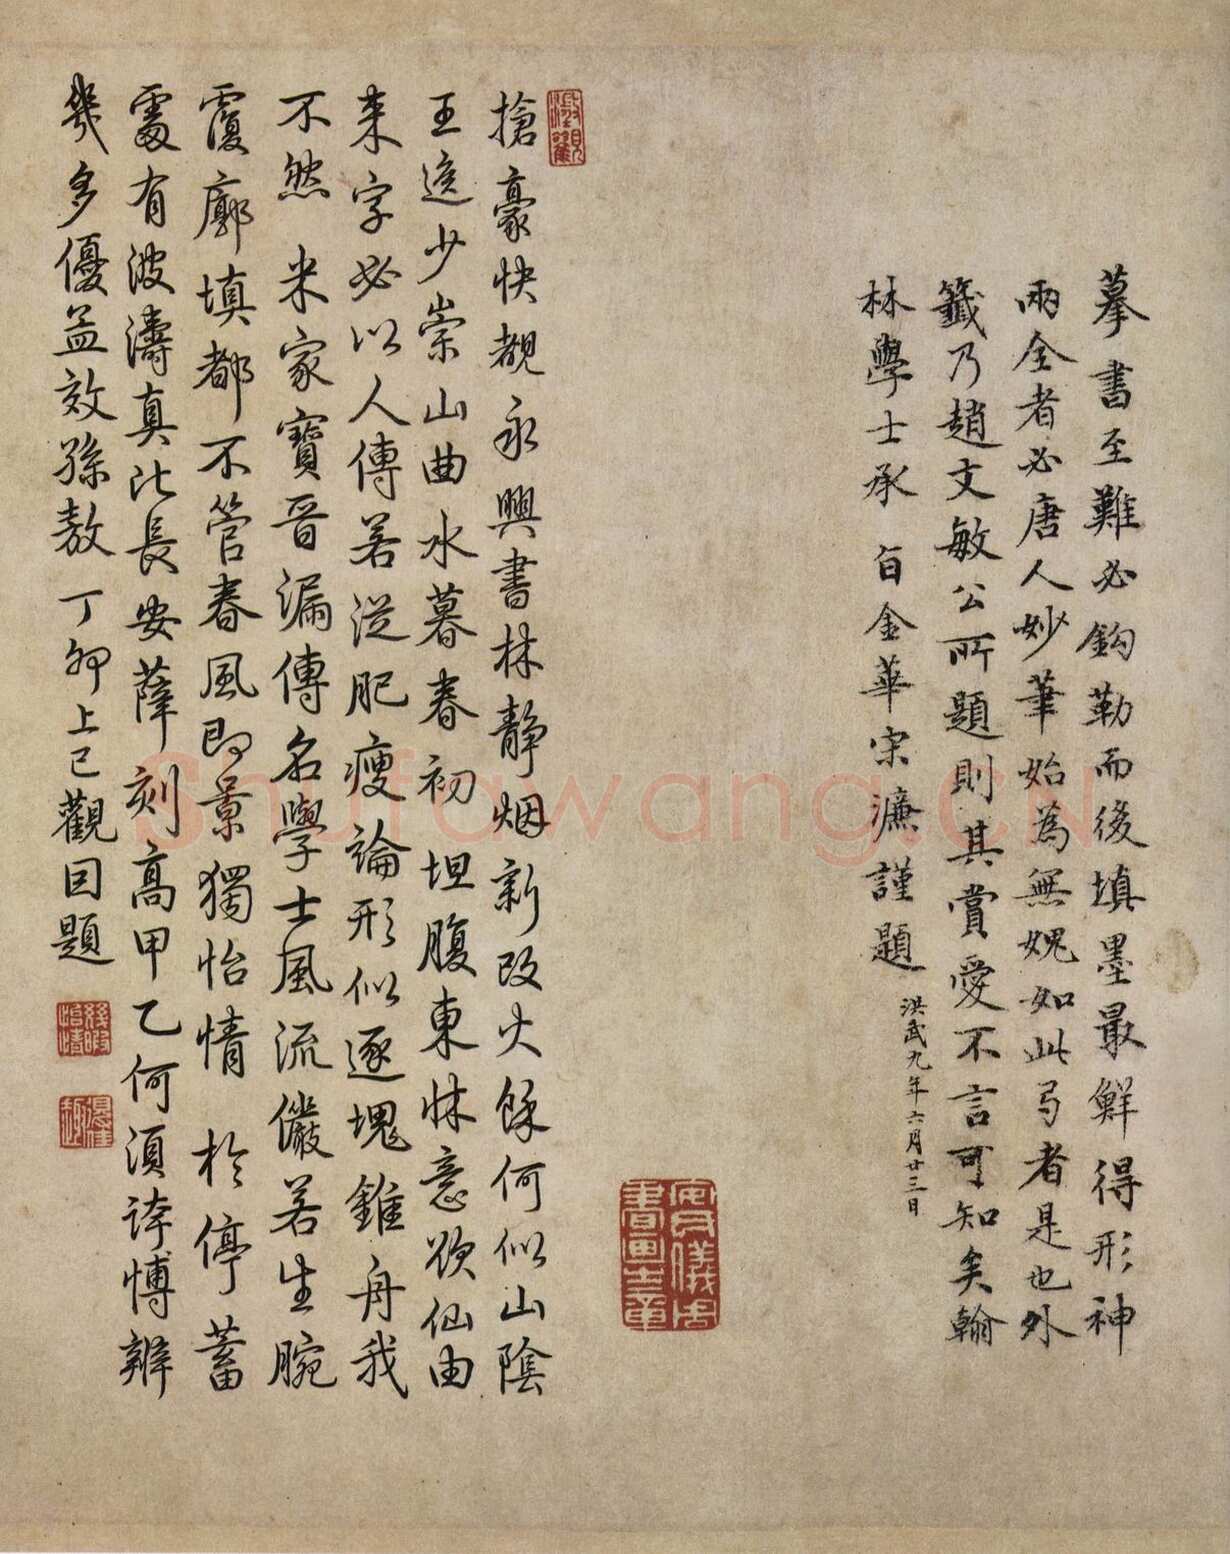 摹書至難必鈎勒而後填墨最鮮得形神
兩全者必唐人妙筆始為無媿如此弓者是也外
籤乃趙文敏公所題則其賞愛不言可知矣翰
林學士承旨金華宋濂謹題
洪武九年六月廿三日
搶豪快覩永興書林靜烟新改火餘何似山陰
王逸少崇山曲水暮春初坦腹東牀意欲仙由
来字必以人傳若從肥瘦論形似逐塊錐舟我
不然米家寶晋漏傳名學士風流儼若生腕
覆廓填都不管春風即景獨怡情於停蓄
處有波濤真比長安薛刻高甲乙何須誇博辨
幾多優孟效孫敖丁卯上巳觀因題
安儀周書畫之章
幾暇怡情
得佳趣
Shufawang.CN